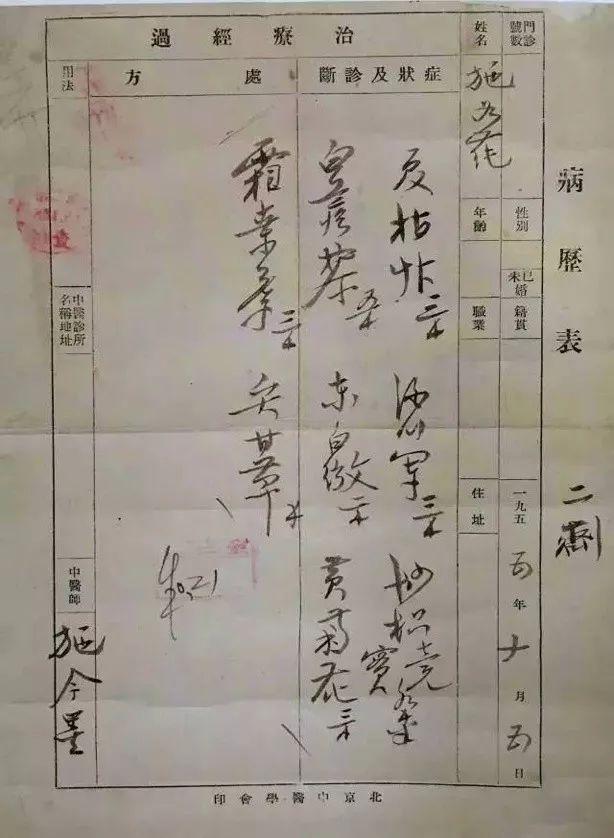 病歷表
二劑
門診號數
性別
已未婚
籍貫
一九五五年十月五日
姓名
施
花
年齡
職業
住址
治療經過
症狀及診斷
處方
用法
軍三錢
炒枳壳實
白蒺藜五錢
東白薇二錢
黃菊花三錢
霜桑葉三錢
炙甘草
中醫診所名稱地址
中醫師
施今墨
北京中醫學會印